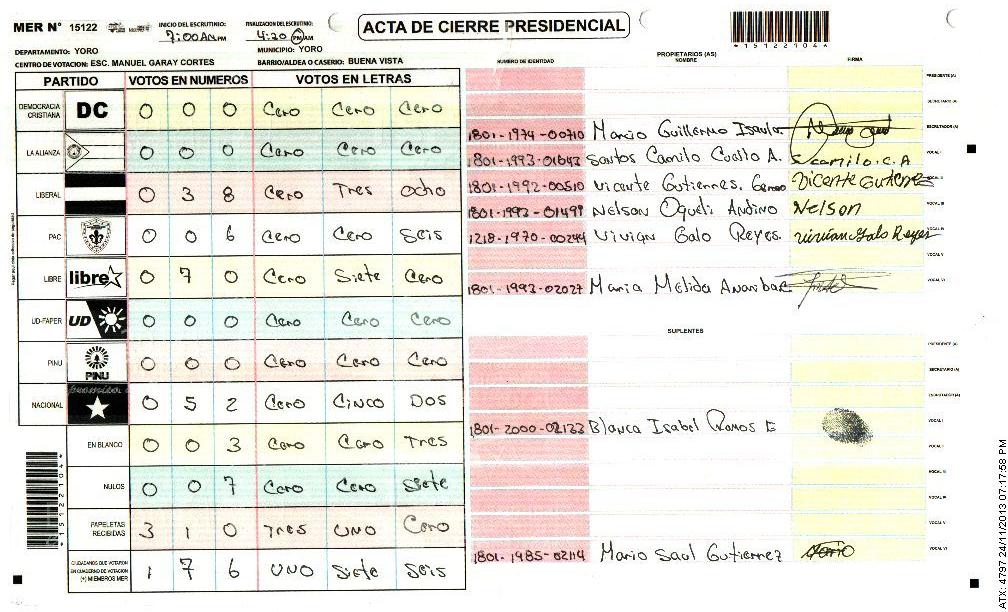 MER N° 15122 INICIO DEL ESCRUTINIO: 7:00 AM PM FINALIZACION DEL ESCRUTINIO: 4:20 PM AM
ACTA DE CIERRE PRESIDENCIAL
*15122104*
DEPARTAMENTO: YORO MUNICIPIO: YORO
CENTRO DE VOTACION: ESC. MANUEL GARAY CORTES BARRIO/ALDEA O CASERIO: BUENA VISTA
PARTIDO VOTOS EN NUMEROS VOTOS EN LETRAS
DEMOCRACIA CRISTIANA DC 0 0 0 Cero Cero Cero
LA ALIANZA 0 0 0 Cero Cero Cero
LIBERAL 0 3 8 Cero Tres ocho
PAC 0 0 6 Cero Cero Seis
LIBRE libre 0 7 0 Cero Siete Cero
UD-FAPER UD 0 0 0 Cero Cero Cero
PINU PINU 0 0 0 Cero Cero Cero
NACIONAL 0 5 2 Cero Cinco Dos
EN BLANCO 0 0 3 Cero Cero Tres
NULOS 0 0 7 Cero Cero Siete
PAPELETAS RECIBIDAS 3 1 0 Tres UNO Cero
CIUDADANOS QUE VOTARON EN CUADERNO DE VOTACION (+) MIEMBROS MER 1 7 6 UNO Siete Seis
PROPIETARIOS (AS)
NUMERO DE IDENTIDAD NOMBRE FIRMA
PRESIDENTE (A)
SECRETARIO (A)
1801-1974-00710 Marcio Guillermo Isaula ESCRUTADOR (A)
1801-1993-01643 Santos Camilo Cualto A. S camilo.C.A VOCAL I
1801-1992-00510 Vicente Gutierres. Vicente Gutierres VOCAL II
1801-1993-01499 Nelson Oqueli Andino Nelson VOCAL III
1218-1970-00244 Vivian Galo Reyes. vivian Galo Reyes VOCAL IV
VOCAL V
1801-1993-02027 Maria Melida Anaribae VOCAL VI
SUPLENTES
PRESIDENTE (A)
SECRETARIO (A)
ESCRUTADOR (A)
1801-2000-02133 Blanca Isabel Ramos E VOCAL I
VOCAL II
VOCAL III
VOCAL IV
VOCAL V
1801-1985-02114 Mario Saul Gutierrez Mario VOCAL VI
*15122104*
ATX: 4797 24/11/2013 07:17:58 PM